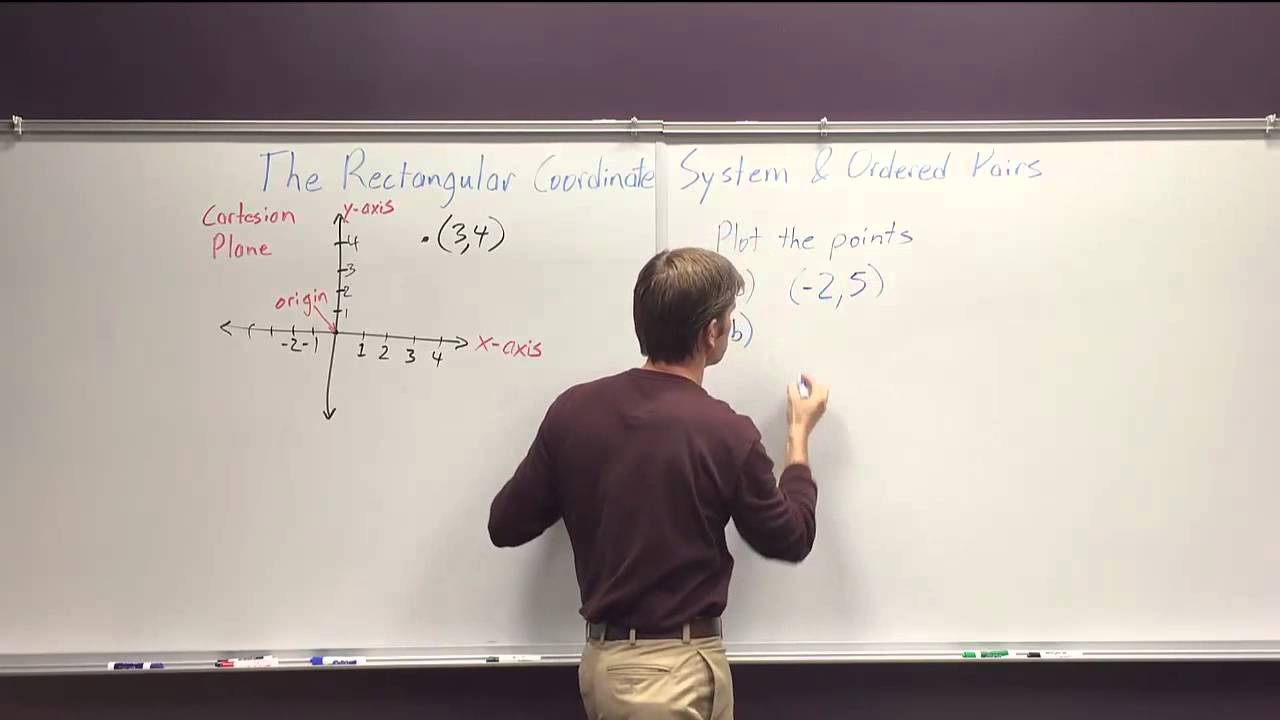 The Rectangular Coordinate System & Ordered Pairs
Cartesian
Plane
y-axis
(3,4)
4
3
2
1
origin
-2 -1 1 2 3 4
x-axis
Plot the points
(-2,5)
b)